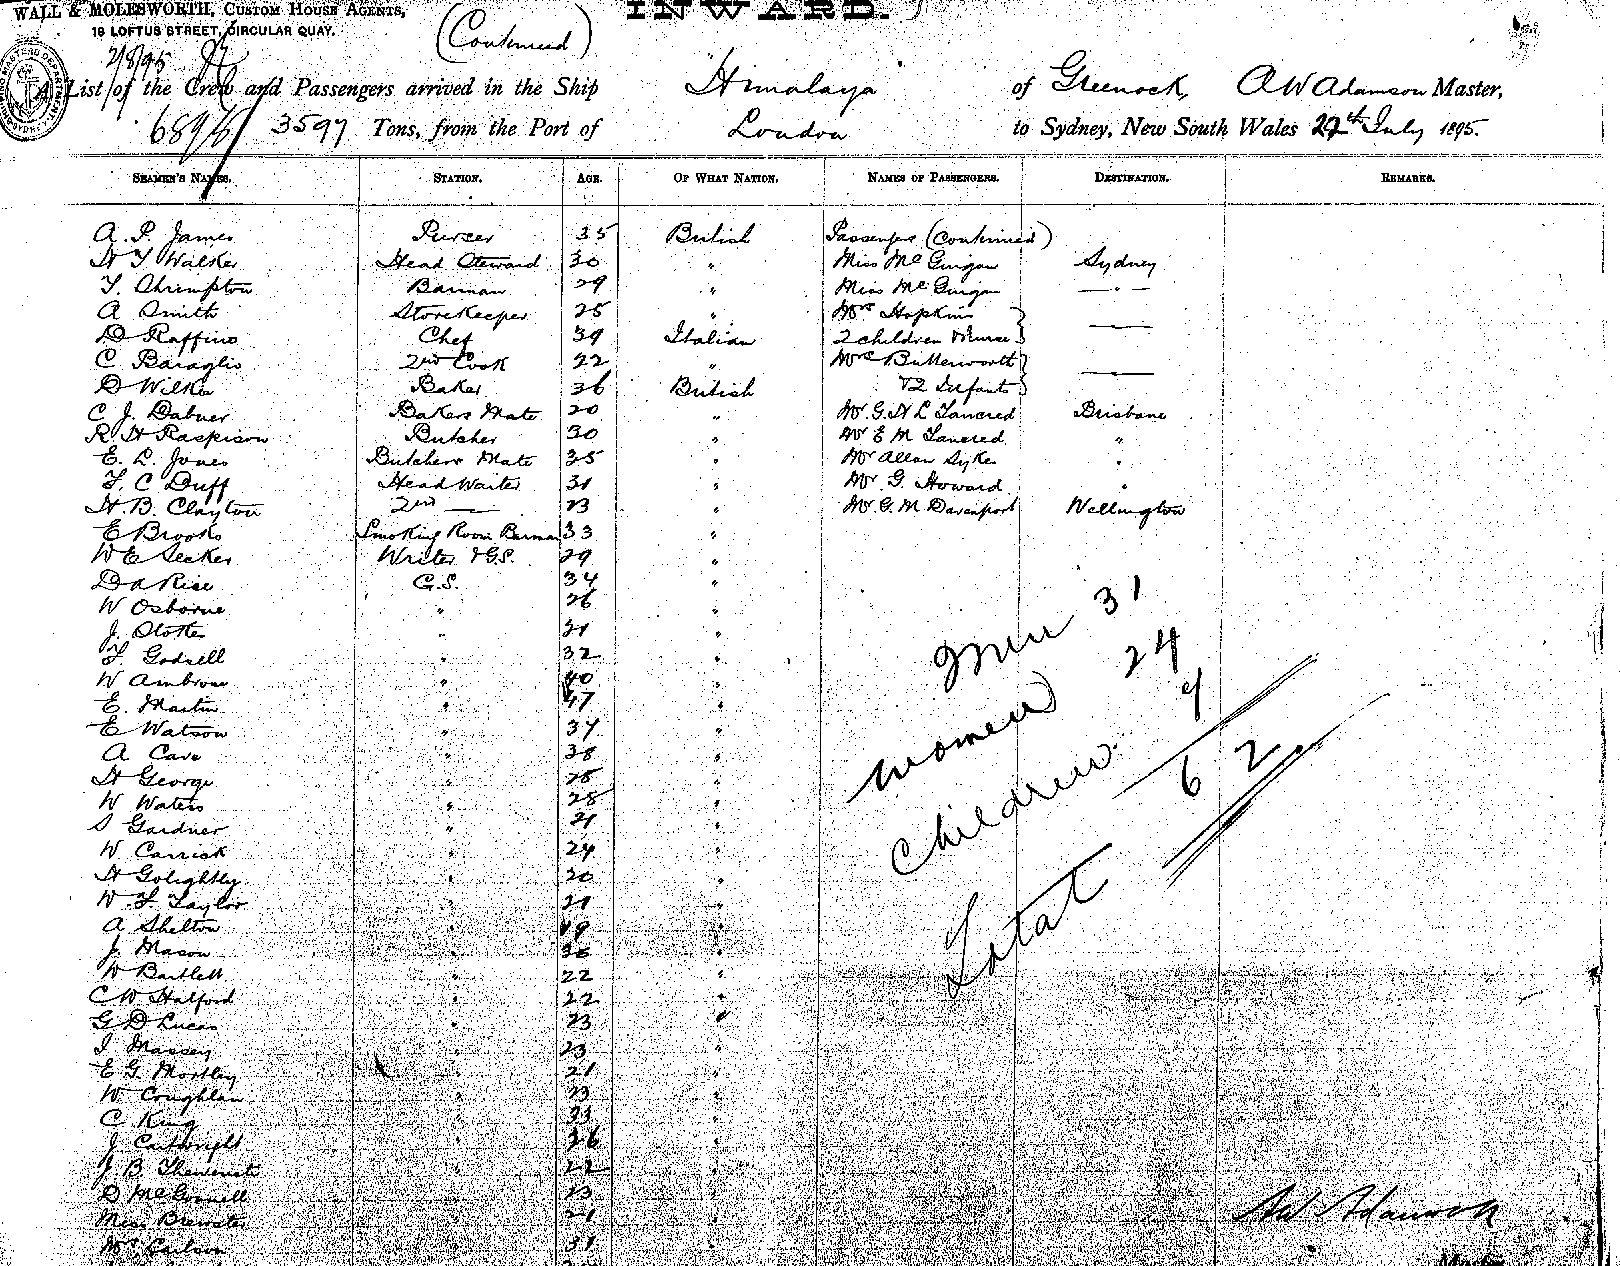 WALL & MOLESWORTH, CUSTOM HOUSE AGENTS,
19 LOFTUS STREET, CIRCULAR QUAY.
INWARD.
(Continued)
2/8/95
A List of the Crew and Passengers arrived in the Ship Himalaya of Greenock, A W Adamson Master,
3597 Tons, from the Port of London to Sydney, New South Wales 27th July 1895.
SEAMEN'S NAMES. STATION. AGE. OF WHAT NATION. NAMES OF PASSENGERS. DESTINATION. REMARKS.
A. P. James Purser 35 British Passengers (Continued)
H T Walker Head Steward 30 " Miss McGuigan Sydney
T. Shrimpton Barman 29 " Miss McGuigan — " —
A Smith Storekeeper 25 " Mrs Hopkins
D Raffino Chef 39 Italian 2 children & Nurse ——
C Baraglio 2nd Cook 22 " Mrs Butterworth
D Wilkie Baker 36 British & 2 Infants ——
C J. Dabner Bakers Mate 20 " Mr G. H L Tancred Brisbane
R. H Raspison Butcher 30 " Mr E M Tancred "
E. L. Jones Butchers Mate 25 " Mr Allan Sykes "
T. C Duff Head Waiter 31 " Mr G. Howard "
H. B. Clayton 2nd —— 23 " Mr G. M Davenport Wellington
E Brooks Smoking Room Barman 33 "
W E Secker Writer & G.S. 29 "
D A Rice G.S. 34 "
W Osborne " 26 "
J. Stokes " 21 "
T. Godsell " 32 "
W Ambrose " 40 "
E. Martin " 47 "
E Watson " 34 "
A Cave " 38 "
H George " 25 "
W Waters " 28 "
S Gardner " 21 "
W Carrick " 24 "
H Golightly " 20 "
W. T. Taylor " 21 "
A Shelton " 19 "
J. Mason " 36 "
W Bartlett " 22 "
C W Halford " 22 "
G D Lucas " 23 "
I Massey " 23 "
E G. Mortley " 21 "
W Coughlan " 23 "
C King "
J Cartwright " 26 "
J B 22 "
D McConnell 23 "
Miss Brewster 21
Mrs Carlson 31
Men 31
Women 24
Children 7
Total 62
A W Adamson
Master